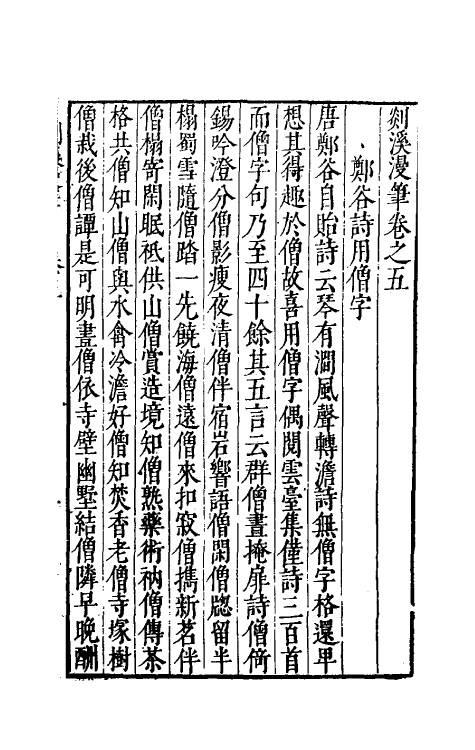 剡溪漫筆卷之五
鄭谷詩用僧字
唐鄭谷自貽詩云琴有澗風聲轉澹詩無僧字格還卑
想其得趣於僧故喜用僧字偶閱雲臺集僅詩三百首
而僧字句乃至四十餘其五言云群僧晝掩扉詩僧倚
錫吟澄分僧影瘦夜清僧伴宿岩響語僧閑僧窗留半
榻蜀雪隨僧踏一先饒海僧遠僧來扣寂僧攜新茗伴
僧榻寄閑眠祗供山僧賞造境知僧熟藥術衲僧傳茶
格共僧知山僧與水禽冷澹好僧知焚香老僧寺塚樹
僧栽後僧譚是可明晝僧依寺壁幽墅結僧隣早晚酬